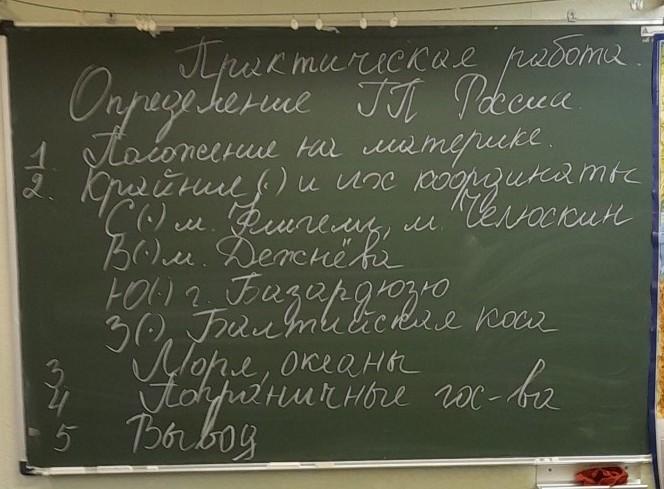 Практическая работа.
Определение ГП России.
1 Положение на материке.
2. Крайние (.) и их координаты
С(.) м. Флигели, м. Челюскин
В(.) м. Дежнёва
Ю(.) г. Базардюзю
З(.) Балтийская коса
3 Моря, океаны
4 Пограничные гос-ва
5 Вывод